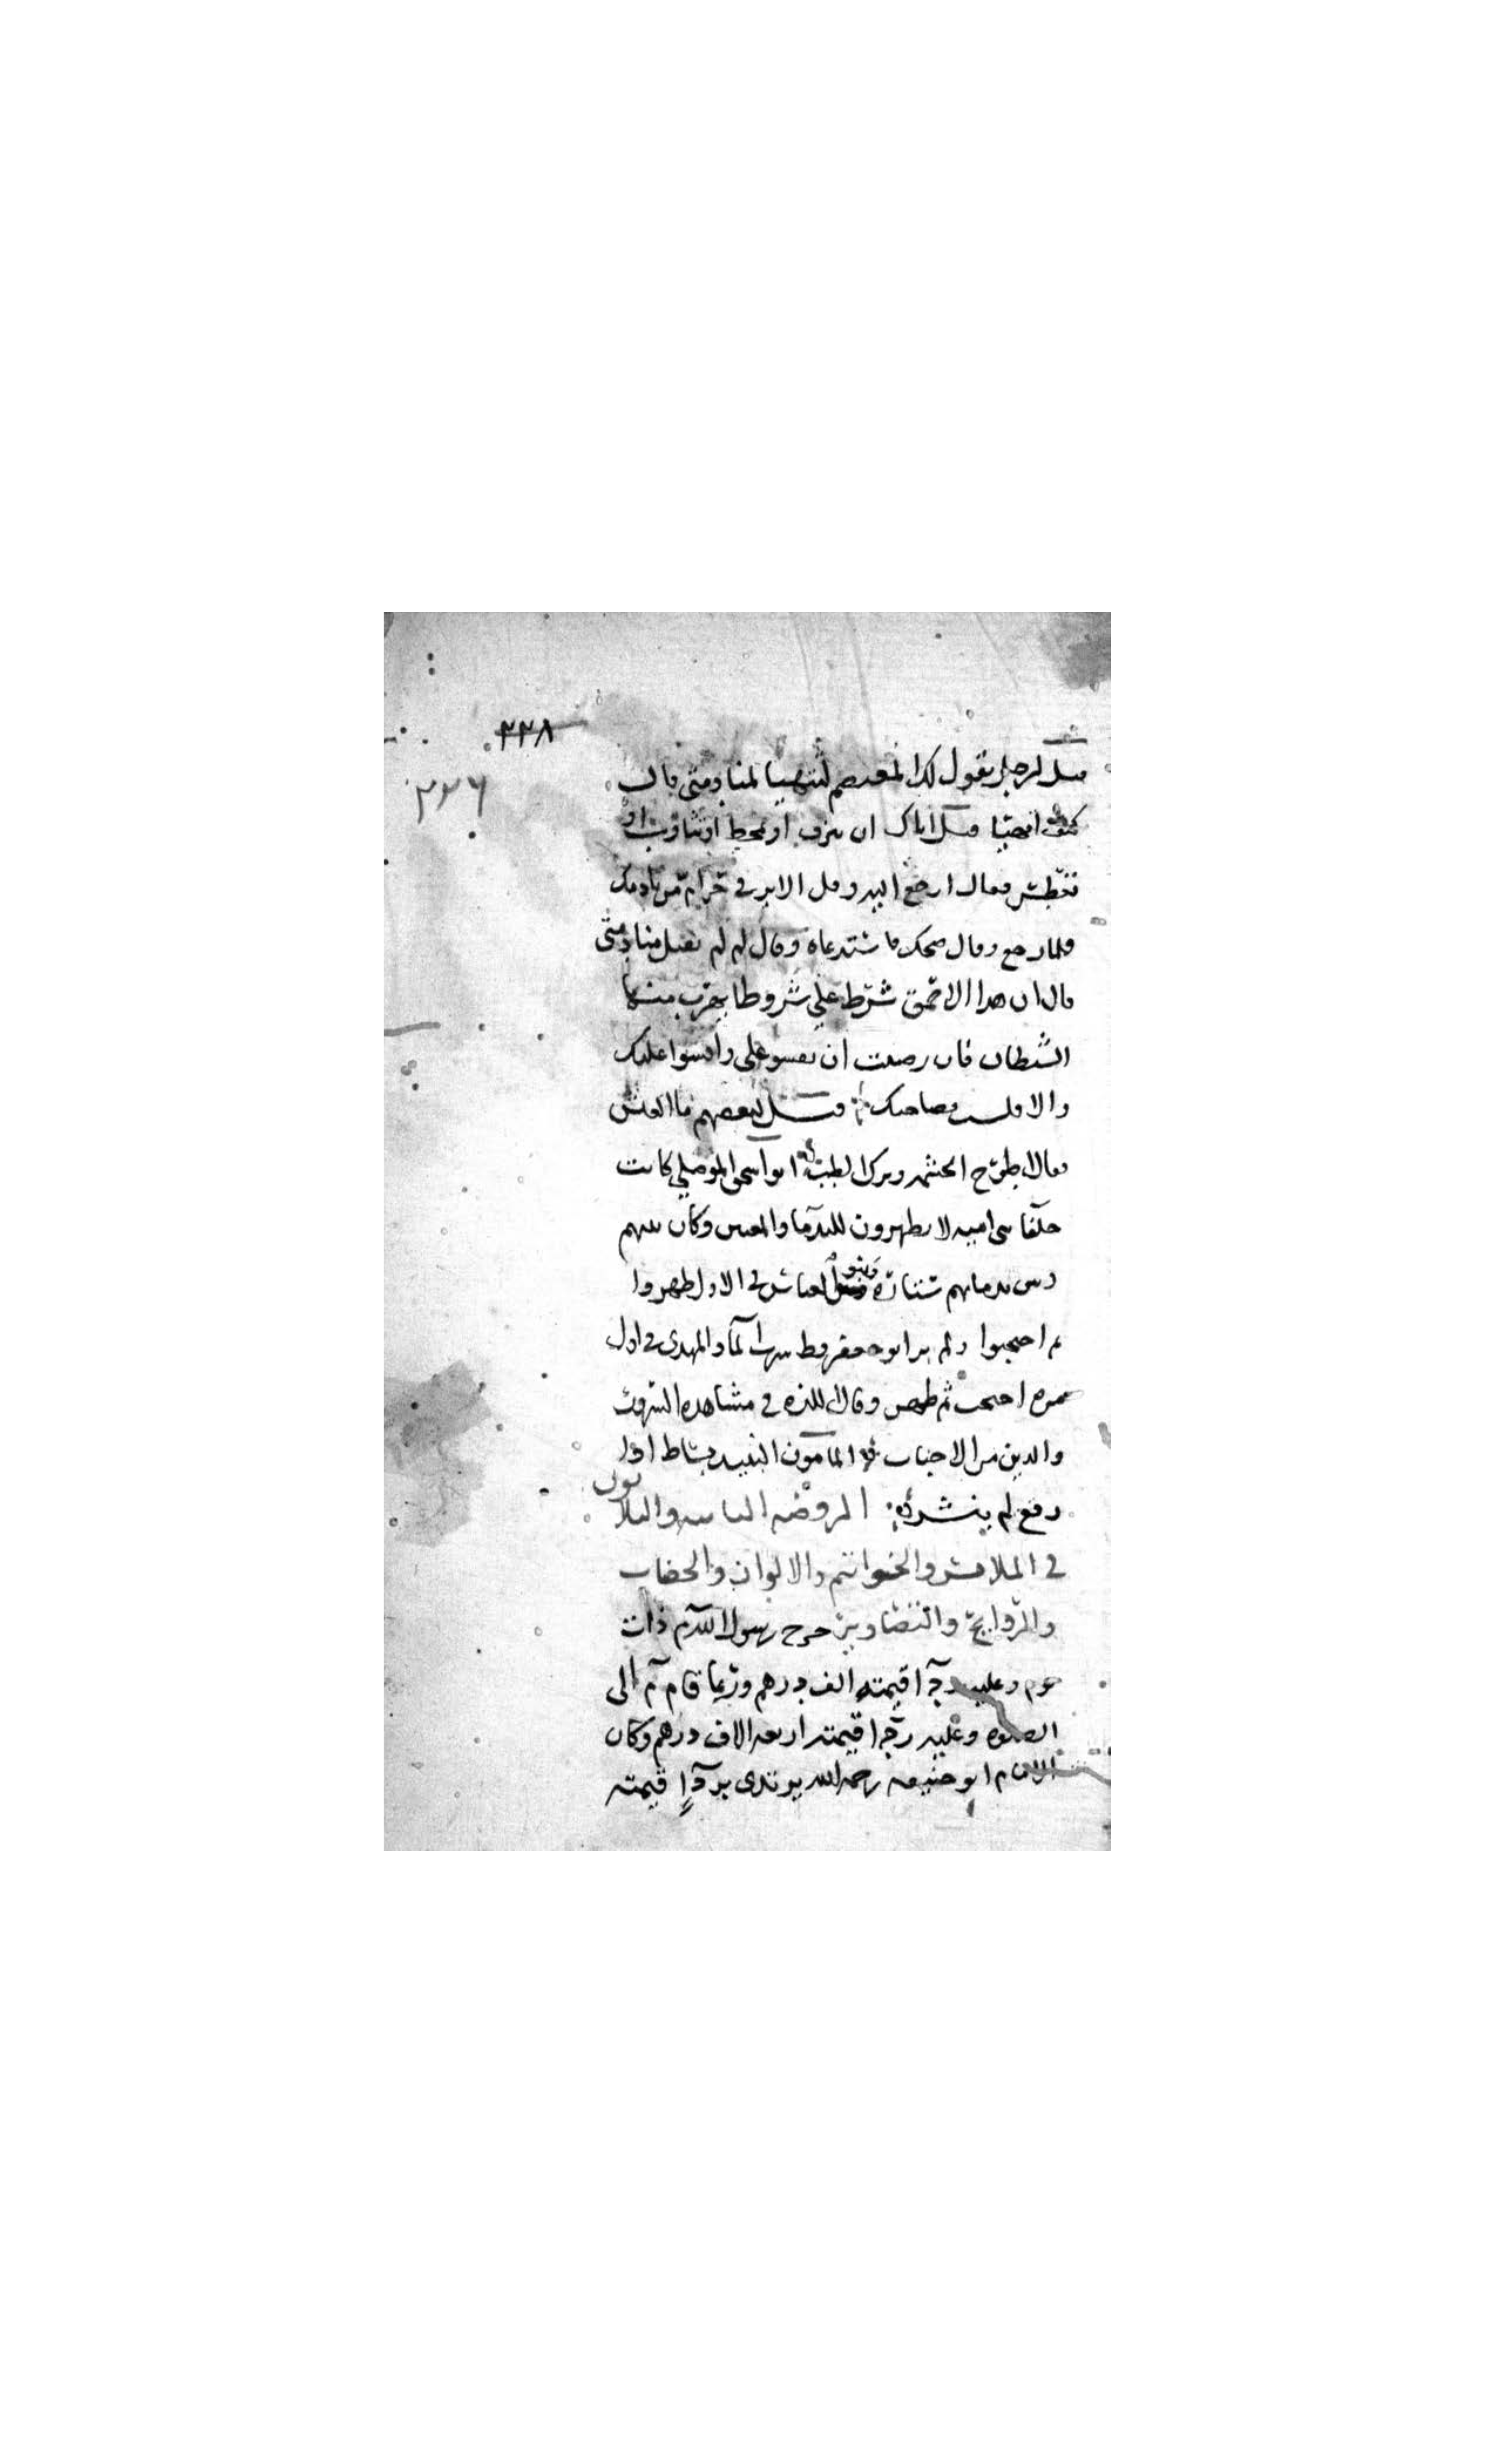 ٢٣٨
٣٣٦
قيل لرجل يقول لك المعتصم لتتهيأ لمنادمتي قال
كيف اتهيأ قيل اياك ان تبزق او تمخط او تتثاوب او
تعطس فقال ارجع اليه وقل الاير في حرام من نادمك
فلما رجع وقال ضحك فاستدعاه وقال له لم تقبل منادمتي
قال ان هذا الاحمق شرط علي شروطا يهرب منها
الشيطان فان رضيت ان تفسو علي وافسوا عليك
والا فلست بصاحبك قيل لبعضهم ما العيش
فقال اطراح الحشمة وترك الطبيب ابو اسحق الموصلي كانت
خلفا بني اميه لا يظهرون للندما والمغنين وكان بينهم
وبين ندمايهم ستارة وبنو العباس في الاول ظهروا
ثم احتجبوا ولم ير ابو جعفر قط يشرب الا الماء والمهدي في اول
عمره احتجب ثم ظهر وقال اللذة في مشاهدة السرور
والدنو من الاحباب المامون النبيذ بساط اذا
رفع لم ينشر الروضة الثامنة والثلاثون
في الملابس والخواتم والالوان والخضاب
والروايح والتصاوير خرج رسول الله م ذات
يوم وعليه ردآ قيمته الف درهم وربما قام م الى
الصلوه وعليه ردآ قيمته اربعه الاف درهم وكان
الامام ابو حنيفه رحمه الله يرتدي بردآ قيمته